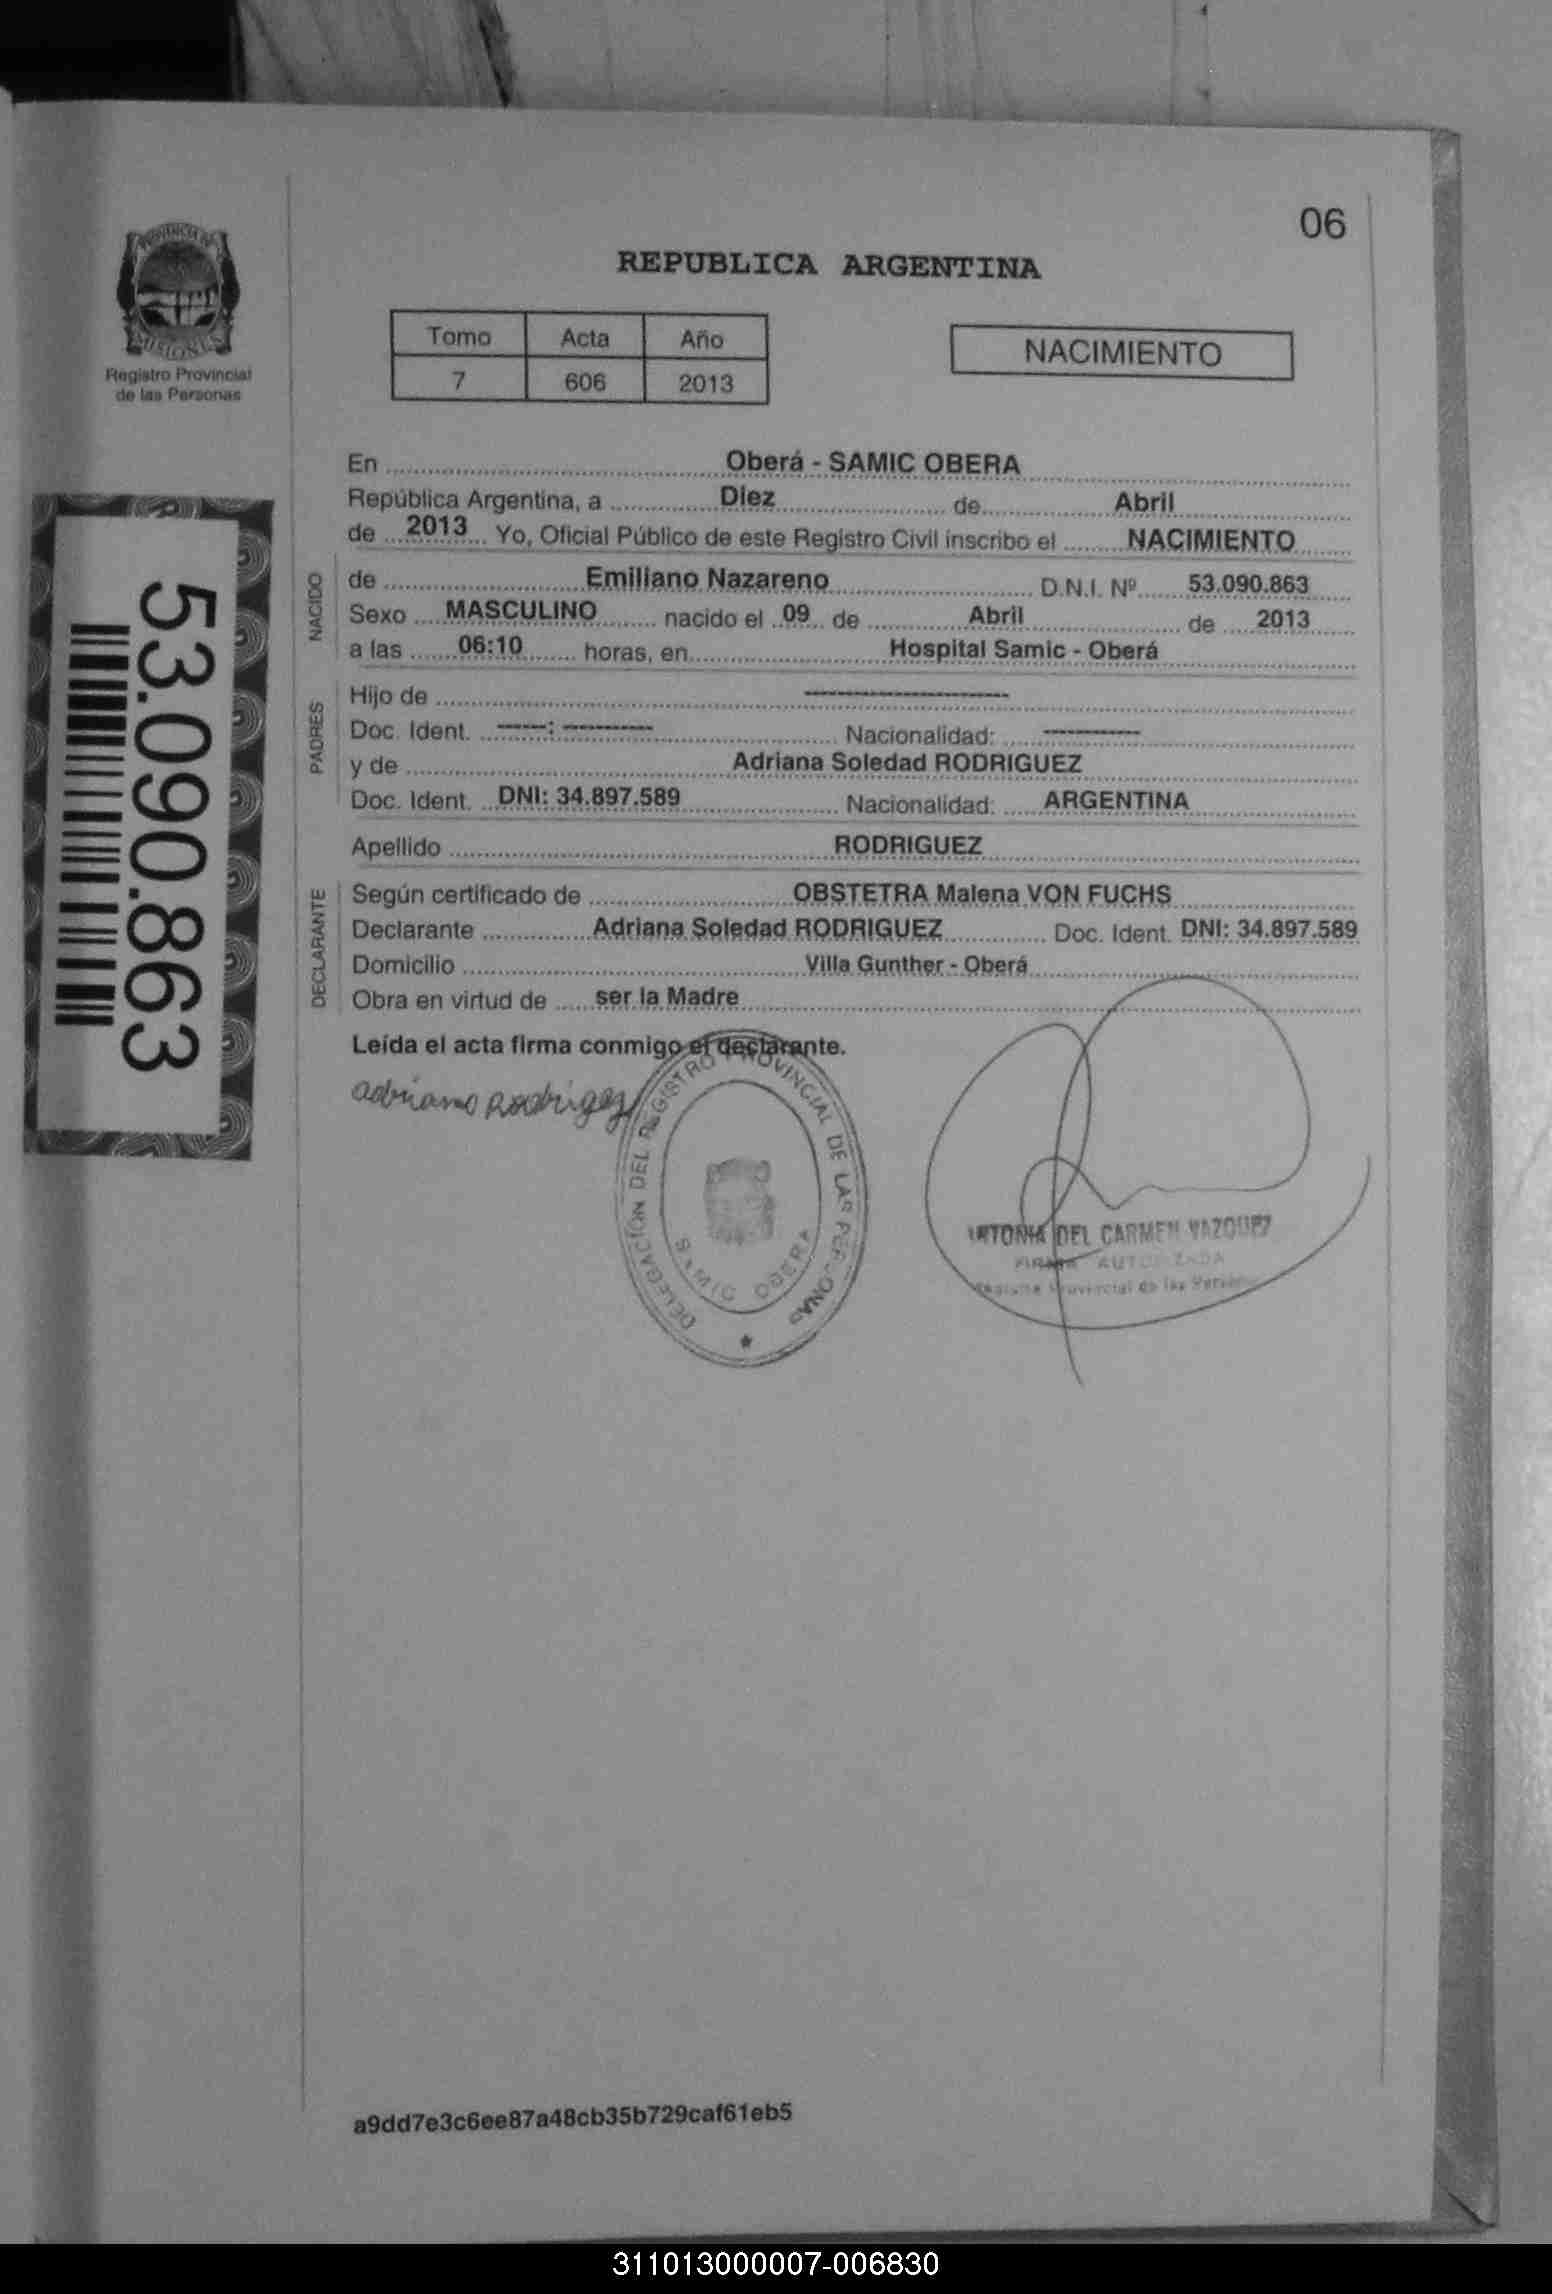 06
PROVINCIA DE
MISIONES
Registro Provincial
de las Personas
REPUBLICA ARGENTINA
Tomo Acta Año
7 606 2013
NACIMIENTO
53.090.863
En Oberá - SAMIC OBERA
República Argentina, a Diez de Abril
de 2013 Yo, Oficial Público de este Registro Civil inscribo el NACIMIENTO
NACIDO
de Emiliano Nazareno D.N.I. Nº 53.090.863
Sexo MASCULINO nacido el 09 de Abril de 2013
a las 06:10 horas, en Hospital Samic - Oberá
PADRES
Hijo de --------------------
Doc. Ident. -----: --------- Nacionalidad: ----------
y de Adriana Soledad RODRIGUEZ
Doc. Ident. DNI: 34.897.589 Nacionalidad: ARGENTINA
Apellido RODRIGUEZ
DECLARANTE
Según certificado de OBSTETRA Malena VON FUCHS
Declarante Adriana Soledad RODRIGUEZ Doc. Ident. DNI: 34.897.589
Domicilio Villa Gunther - Oberá
Obra en virtud de ser la Madre
Leída el acta firma conmigo el declarante.
DELEGACION DEL REGISTRO PROVINCIAL DE LAS PERSONAS
SAMIC OBERA
DEL CARMEN VAZQUEZ
FIRMA AUTORIZADA
Registro Provincial de las Personas
a9dd7e3c6ee87a48cb35b729caf61eb5
311013000007-006830